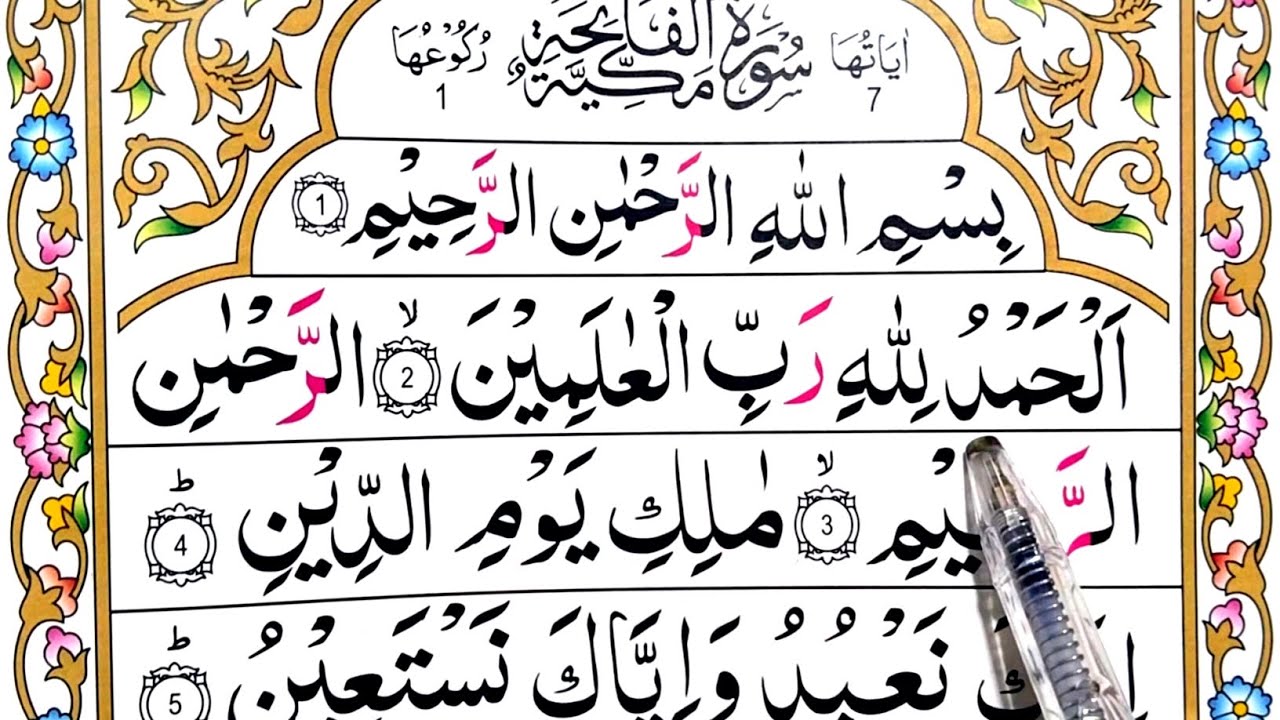 اٰيَاتُهَا 7 سُوْرَةُ الْفَاتِحَةِ مَكِّيَّةٌ رُكُوْعُهَا 1
بِسْمِ اللّٰهِ الرَّحْمٰنِ الرَّحِيْمِ 1
اَلْحَمْدُ لِلّٰهِ رَبِّ الْعٰلَمِيْنَ ۙ 2 الرَّحْمٰنِ
الرَّحِيْمِ ۙ 3 مٰلِكِ يَوْمِ الدِّيْنِ ؕ 4
اِيَّاكَ نَعْبُدُ وَاِيَّاكَ نَسْتَعِيْنُ ؕ 5